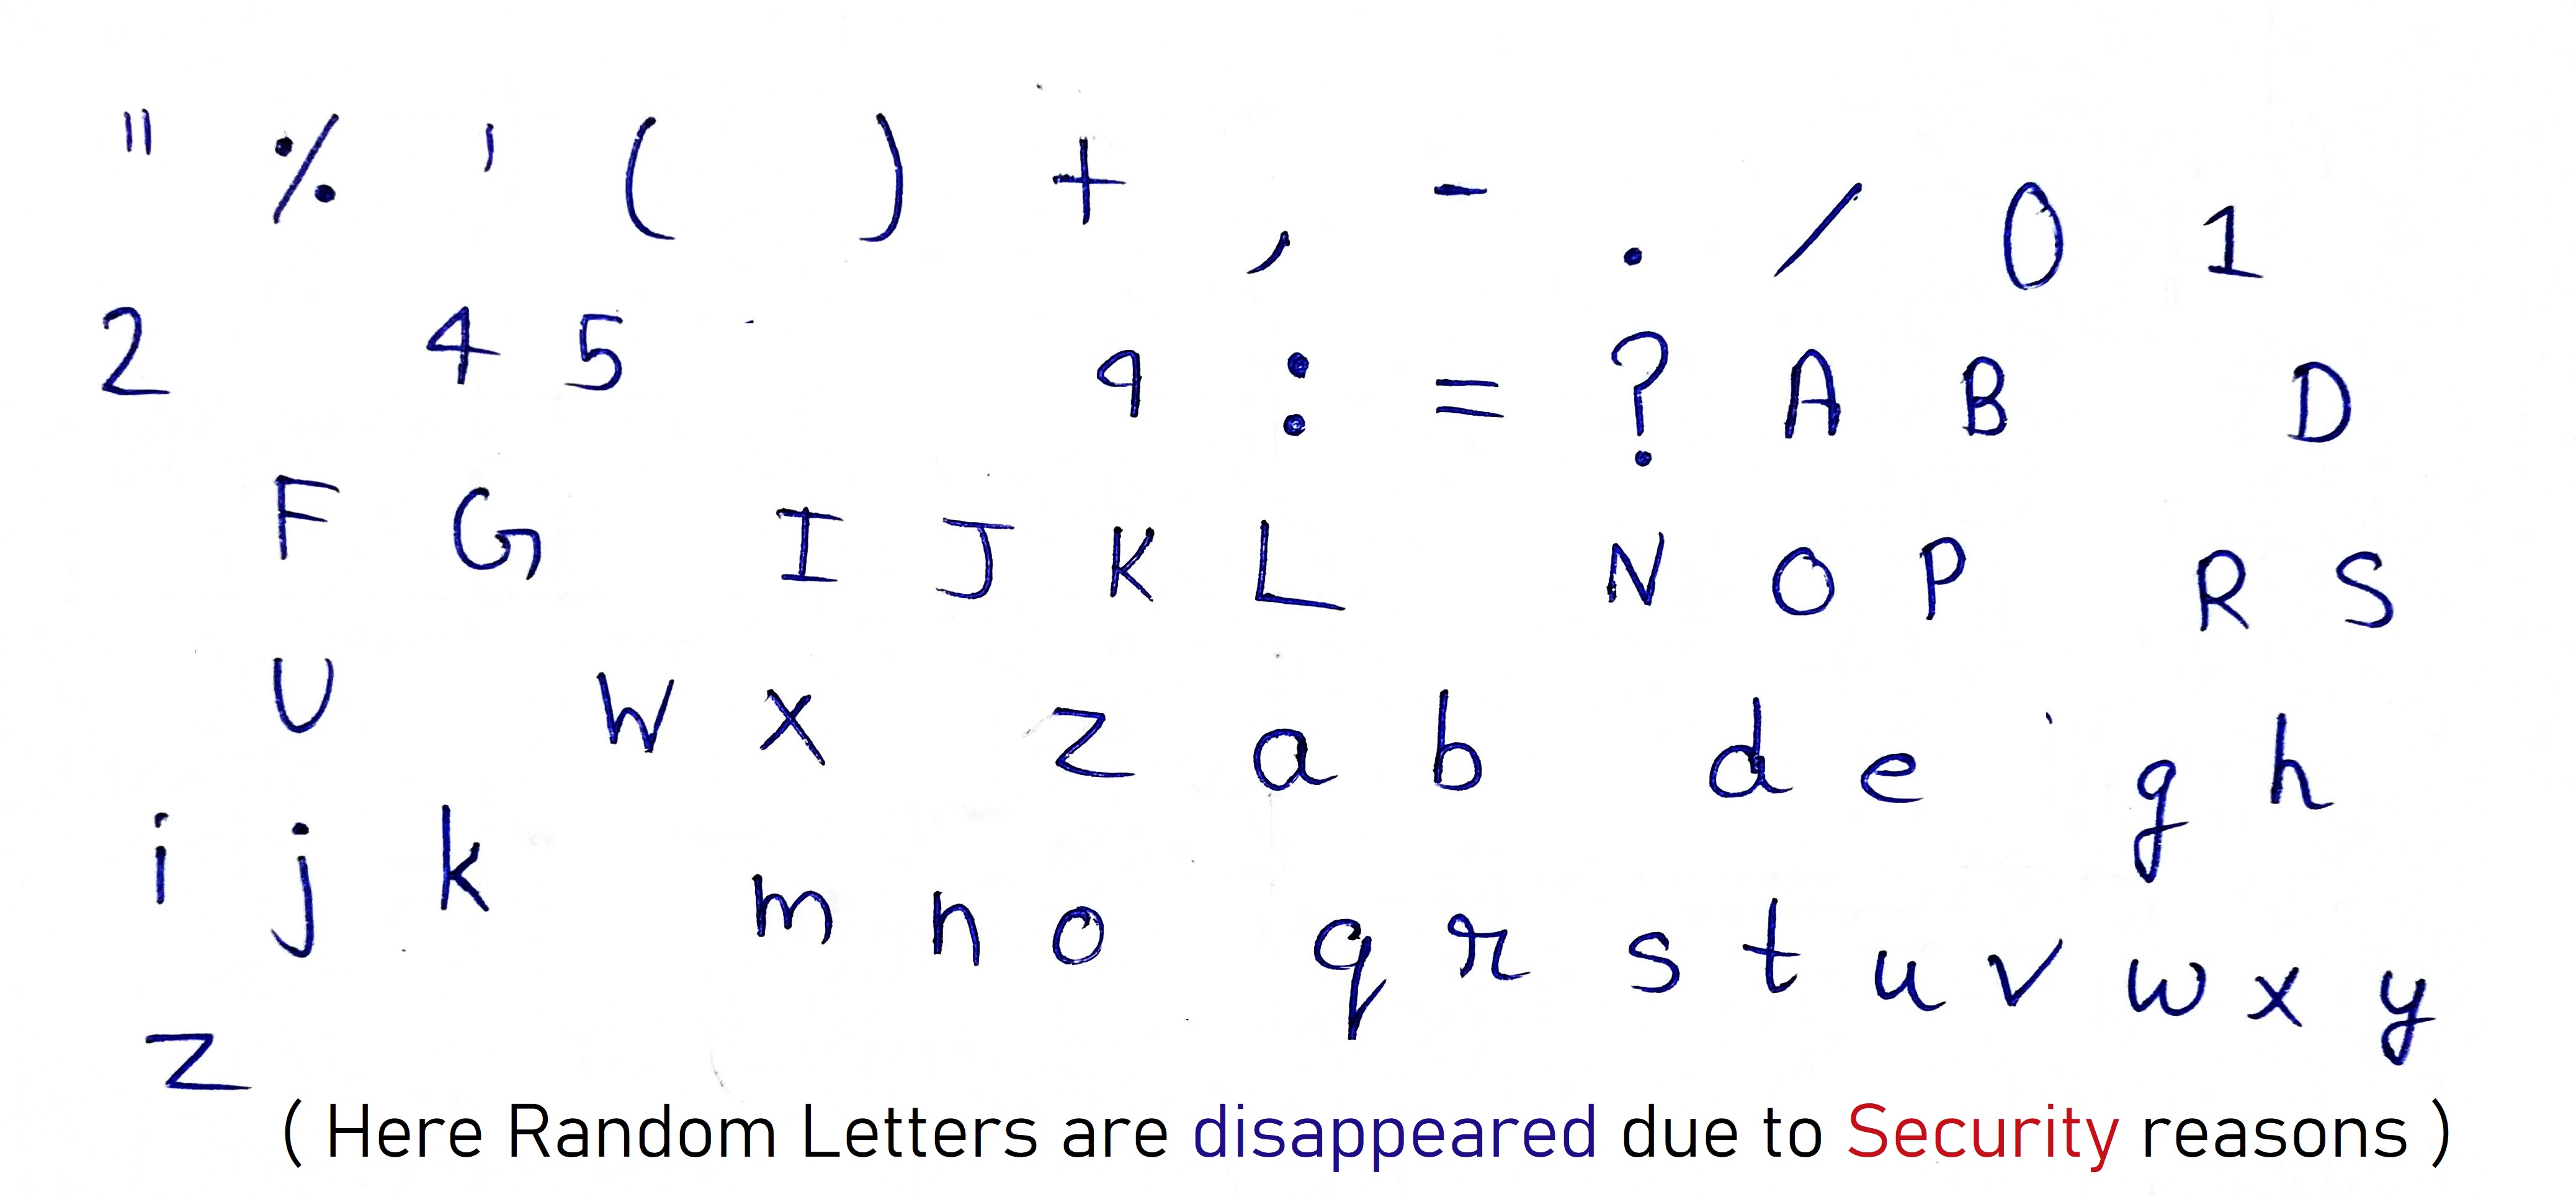 " % ' ( ) + , - . / 0 1
2 4 5 9 : = ? A B D
F G I J K L N O P R S
U W X Z a b d e g h
i j k m n o q r s t u v w x y
z
( Here Random Letters are disappeared due to Security reasons )